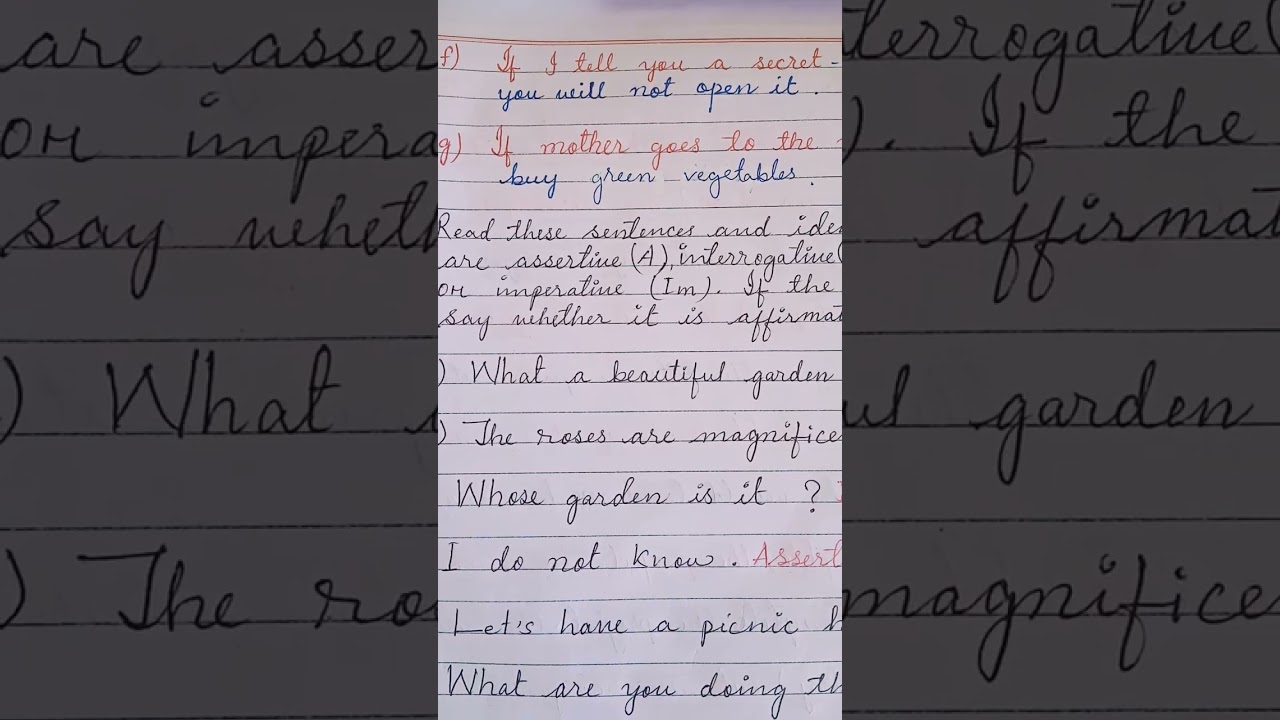 f) If I tell you a secret -
you will not open it.
g) If mother goes to the
buy green vegetables.
Read these sentences and ide
are assertive (A), interrogative(
or imperative (Im). If the
say whether it is affirmat
) What a beautiful garden
) The roses are magnifice
Whose garden is it ?
I do not know. Assert
Let's have a picnic h
What are you doing th